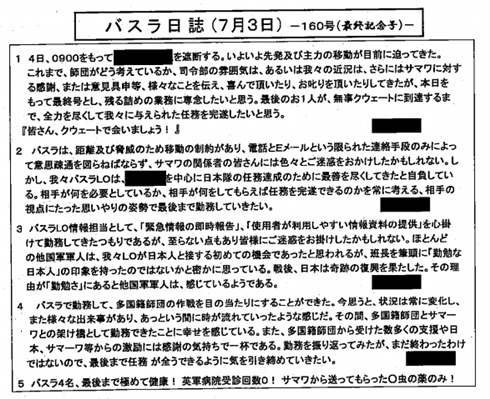 バスラ日誌（7月3日）－160号（最終記念号）－
1 4日、0900をもって を遮断する。いよいよ先発及び主力の移動が目前に迫ってきた。
これまで、師団がどう考えているか、司令部の雰囲気は、あるいは我々の近況は、さらにはサマワに対す
る感謝、または意見具申等、様々なことを伝え、喜んで頂いたり、お叱りを頂いたりしてきたが、本日を
もって最終号とし、残る詰めの業務に専念したいと思う。最後のお1人が、無事クウェートに到達するま
で、全力を尽くして我々に与えられた任務を完遂したいと思う。
『皆さん、クウェートで会いましょう！』
2 バスラは、距離及び脅威のため移動の制約があり、電話とEメールという限られた連絡手段のみによっ
て意思疎通を図らねばならず、サマワの関係者の皆さんには色々とご迷惑をおかけしたかもしれない。し
かし、我々バスラLOは、 を中心に日本隊の任務達成のために最善を尽くしてきたと自負してい
る。相手が何を必要としているか、相手が何をしてもらえば任務を完遂できるのかを常に考える、相手の
視点にたった思いやりの姿勢で最後まで勤務していきたい。
3 バスラLO情報担当として、「緊急情報の即時報告」、「使用者が利用しやすい情報資料の提供」を心掛
けて勤務してきたつもりであるが、至らない点もあり皆様にご迷惑をお掛けしたかもしれない。ほとんど
の他国軍軍人は、我々LOが日本人と接する初めての機会であったと思われるが、班長を筆頭に「勤勉な
日本人」の印象を持ったのではないかと密かに思っている。戦後、日本は奇跡の復興を果たした。その理
由が「勤勉さ」にあると他国軍軍人は、感じているようである。
4 バスラで勤務して、多国籍師団の作戦を目の当たりにすることができた。今思うと、状況は常に変化し、
また様々な出来事があり、あっという間に時が流れていったような感じだ。その間、多国籍師団とサマー
ワとの架け橋として勤務できたことに幸せを感じている。また、多国籍師団から受けた数多くの支援や日
本、サマーワ等からの激励には感謝の気持ちで一杯である。勤務を振り返ってみたが、まだ終わったわけ
ではないので、最後まで任務が全うできるように気を引き締めていきたい。
5 バスラ4名、最後まで極めて健康！ 英軍病院受診回数0！ サマワから送ってもらった〇虫の薬のみ！